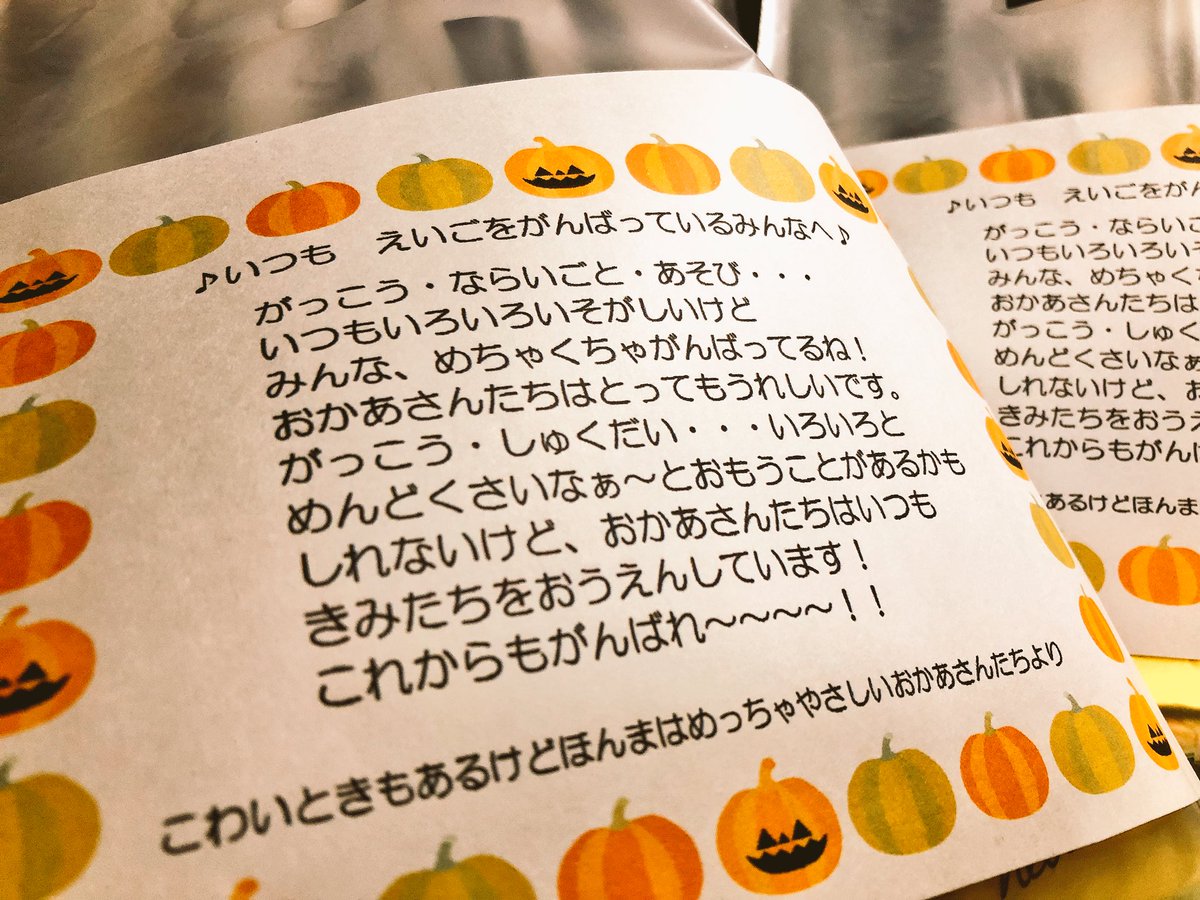 ♪いつも　えいごをがんばっているみんなへ♪
がっこう・ならいごと・あそび・・・
いつもいろいろいそがしいけど
みんな、めちゃくちゃがんばってるね！
おかあさんたちはとってもうれしいです。
がっこう・しゅくだい・・・いろいろと
めんどくさいなぁ～とおもうことがあるかも
しれないけど、おかあさんたちはいつも
きみたちをおうえんしています！
これからもがんばれ～～～～！！
こわいときもあるけどほんまはめっちゃやさしいおかあさんたちより
♪いつも　えいごをがん
がっこう・ならいご
いつもいろいろい
みんな、めちゃく
おかあさんたちは
がっこう・しゅく
めんどくさいなぁ
しれないけど、お
きみたちをおうえ
これからもがん
あるけどほんま